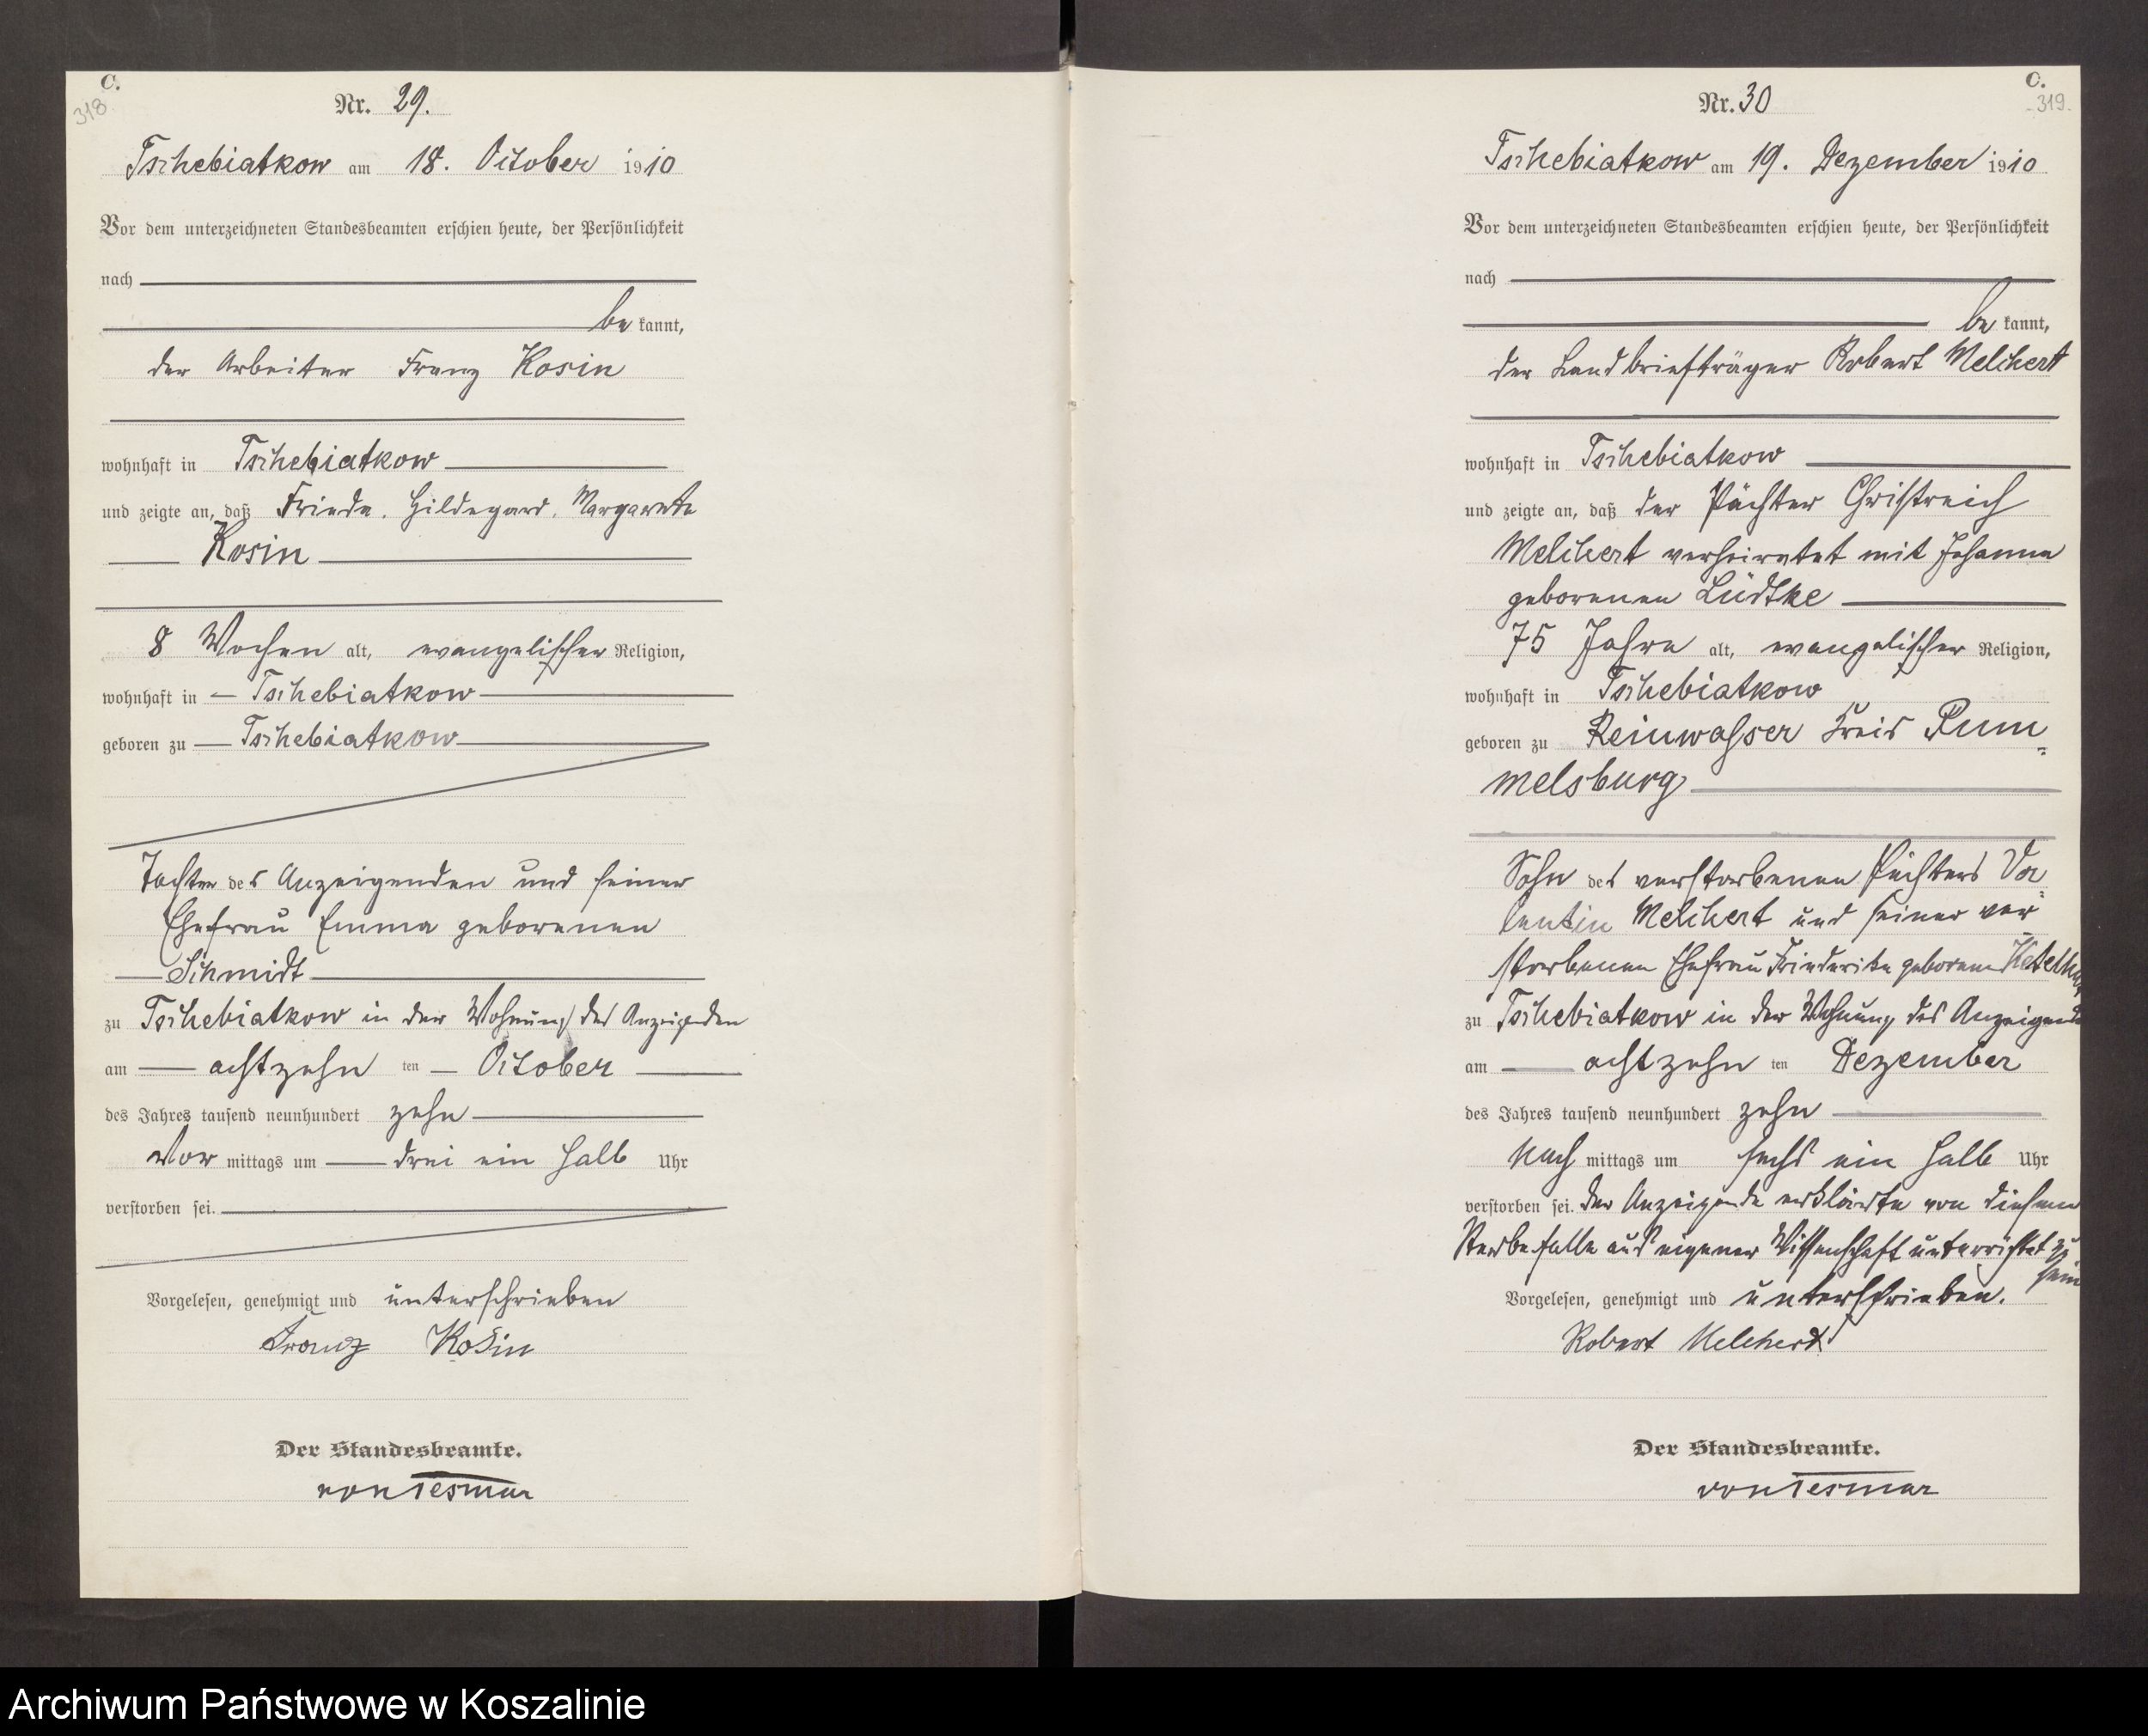 C.
318
Nr. 29.
Tschebiatkow am 18. October 1910
Vor dem unterzeichneten Standesbeamten erschien heute, der Persönlichkeit
nach
be kannt,
der Arbeiter Franz Kosin
wohnhaft in Tschebiatkow
und zeigte an, daß Frieda, Hildegard, Margarete
Kosin
8 Wochen alt, evangelischer Religion,
wohnhaft in Tschebiatkow
geboren zu Tschebiatkow
Tochter des Anzeigenden und seiner
Ehefrau Emma geborenen
Schmidt
zu Tschebiatkow in der Wohnung des Anzeigenden
am achtzehn ten October
des Jahres tausend neunhundert zehn
Vor mittags um drei ein halb Uhr
verstorben sei.
Vorgelesen, genehmigt und unterschrieben
Franz Kosin
Der Standesbeamte.
von Tesmar
C.
319
Nr. 30
Tschebiatkow am 19. Dezember 1910
Vor dem unterzeichneten Standesbeamten erschien heute, der Persönlichkeit
nach
be kannt,
der Landbriefträger Robert Melchert
wohnhaft in Tschebiatkow
und zeigte an, daß der Pächter Christreich
Melchert verheiratet mit Johanna
geborenen Lüdtke
75 Jahre alt, evangelischer Religion,
wohnhaft in Tschebiatkow
geboren zu Reinwasser Kreis Rum=
melsburg
Sohn des verstorbenen Pächters Va=
lentin Melchert und seiner ver=
storbenen Ehefrau Friederike geborenen
zu Tschebiatkow in der Wohnung des Anzeigenden
am achtzehn ten Dezember
des Jahres tausend neunhundert zehn
Nach mittags um sechs ein halb Uhr
verstorben sei. Der Anzeigende erklärte von diesem
Sterbefalle aus eigener Wissenschaft unterrichtet zu
sein
Vorgelesen, genehmigt und unterschrieben.
Robert Melchert
Der Standesbeamte.
von Tesmar
Archiwum Państwowe w Koszalinie